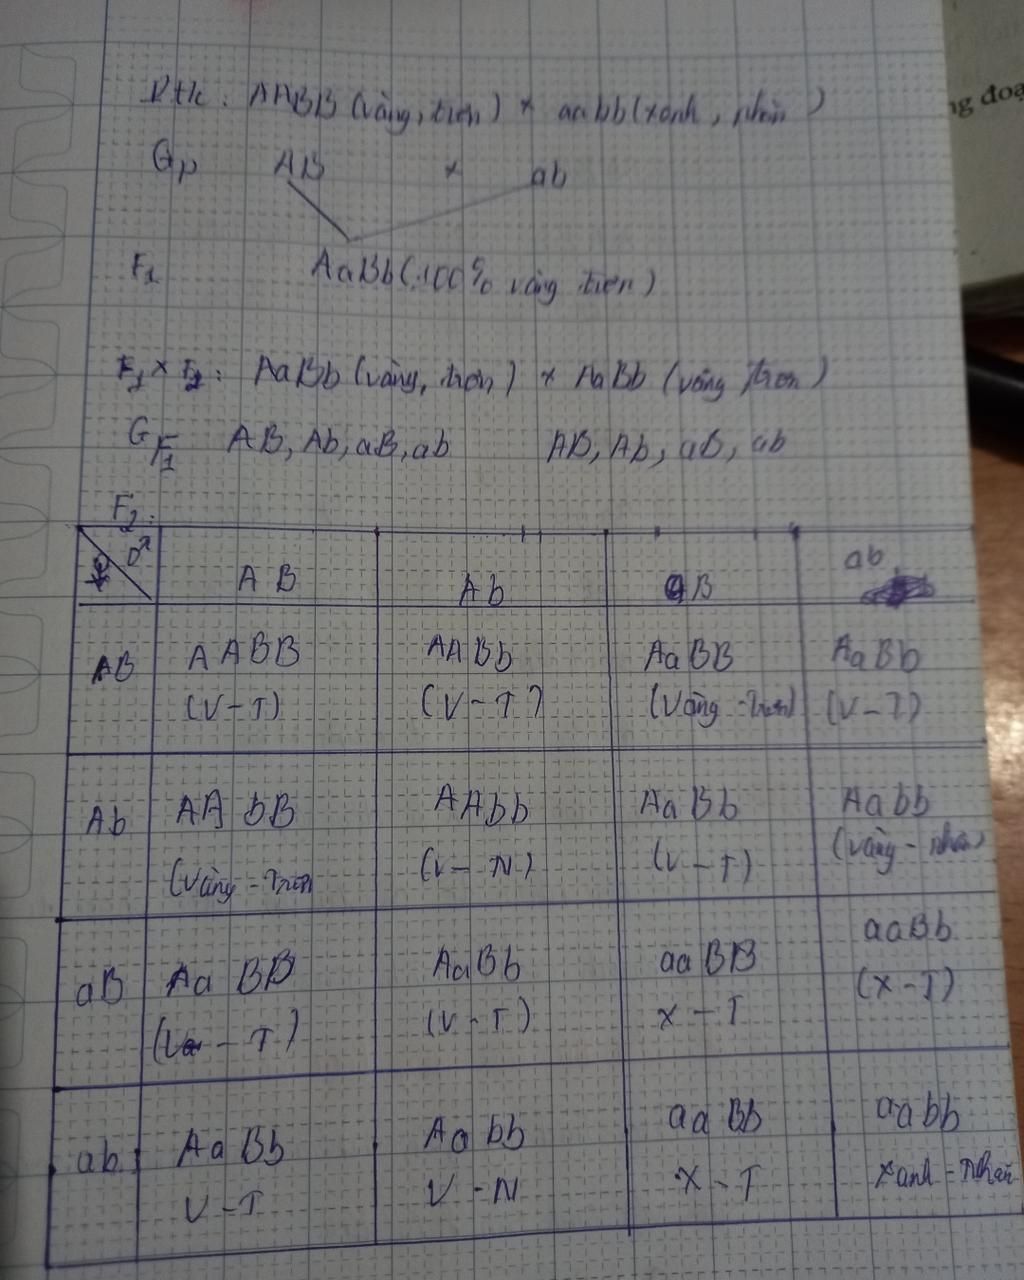 ng đoạ
Ptlc: AABB (vàng, trơn) × aabb (xanh, nhăn)
Gp AB × ab
F1 AaBb (100% vàng trơn)
F1 × F1: AaBb (vàng, trơn) × AaBb (vàng, trơn)
GF1 AB, Ab, aB, ab AB, Ab, aB, ab
F2:
♀ ♂ AB Ab aB ab
AB AABB AABb AaBB AaBb
(V-T) (V-T) (Vàng - Trơn) (V-T)
Ab AAbB AAbb AaBb Aabb
(Vàng - Trơn (V-N) (V-T) (Vàng - nhăn)
aB AaBB AaBb aaBB aaBb
(V - T) (V-T) X-T (X-T)
ab AaBb Aabb aaBb aabb
V-T V-N X-T Xanh-Nhăn